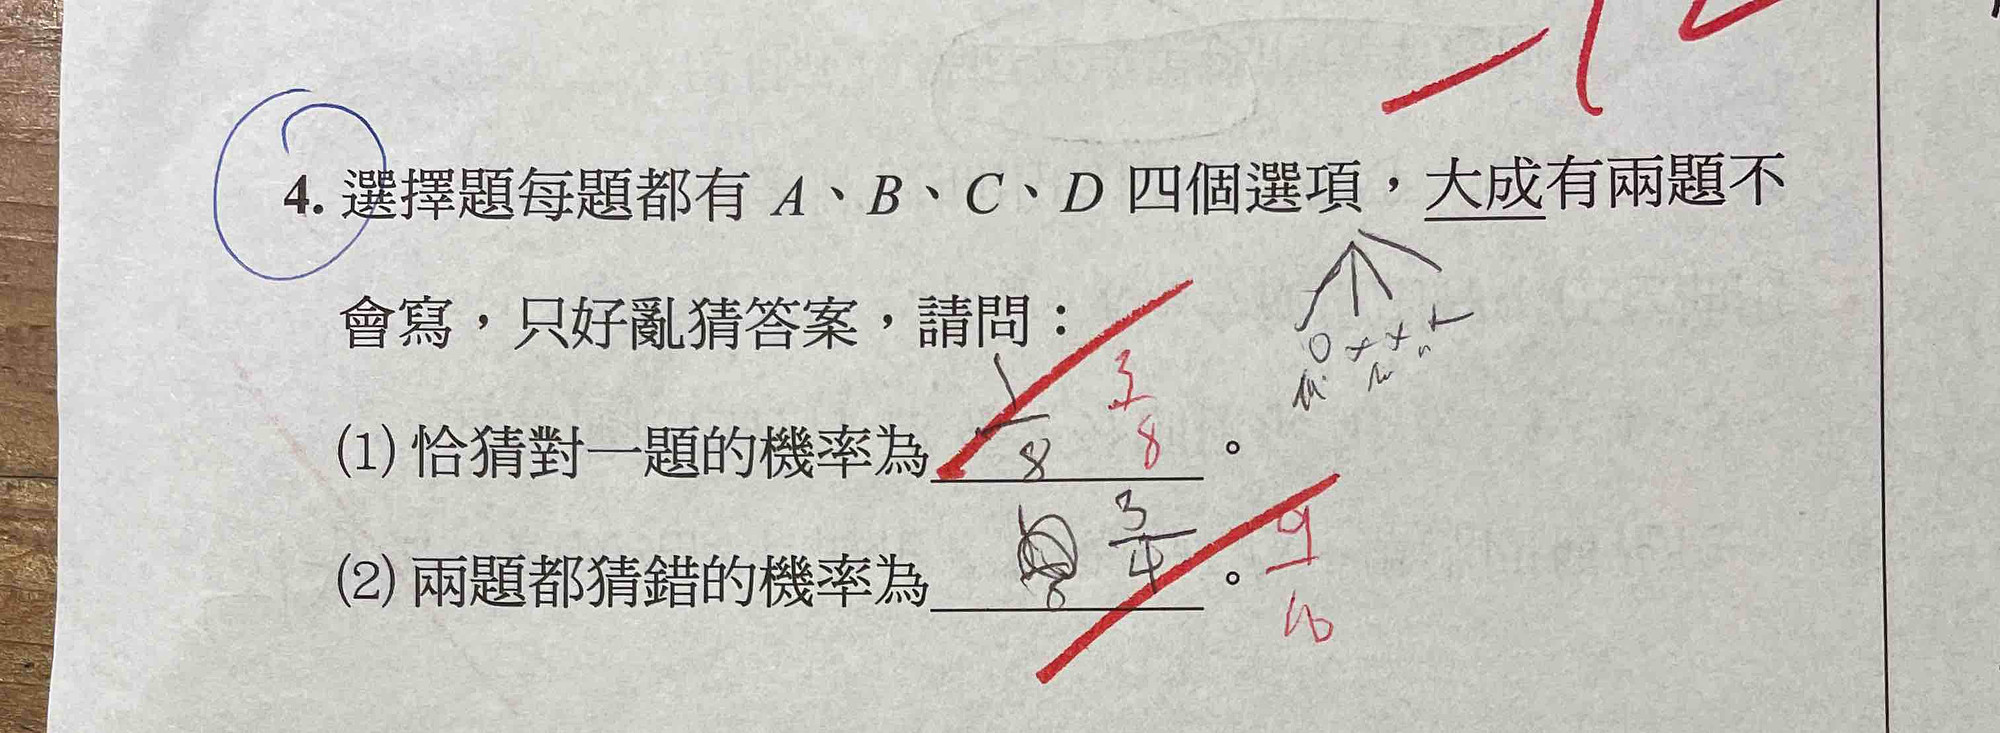 4. 選擇題每題都有 A、B、C、D 四個選項，大成有兩題不
會寫，只好亂猜答案，請問：
(1) 恰猜對一題的機率為 1/8 3/8 。
(2) 兩題都猜錯的機率為 3/4 。 9/16